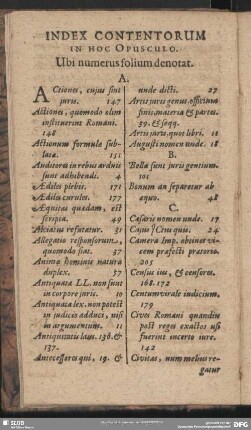 INDEX CONTENTORUM
IN HOC OPUSCULO.
Ubi numerus folium denotat.
A.
ACtiones, cujus sint
juris. 147
Actiones, quomodo olim
instituerint Romani.
148
Actionum formulæ sub-
latæ. 151
Auditores in rebus arduis
sunt adhibendi. 4
Ædiles plebis. 171
Ædiles curules. 177
Æquitas quædam, est
scripta. 49
Alciatus refutatur. 31
Allegatio responsorum,
quomodo fiat. 37
Animæ hominis natura
duplex. 37
Antiquatæ LL. non sunt
in corpore juris. 10
Antiquata lex. non potest
in judicio adduci, nisi
in argumentum. 11
Antiquitatis laus. 136. &
137.
Antecessores qui, 19. &
unde dicti. 27
Artis juris genus, officium
finis, materia & partes.
59. & seqq.
Artis partes, quot libri. 11
Augusti nomen unde. 18
B.
Bella sunt juris gentium.
101
Bonum an separetur ab
æquo. 48
C.
Cæsaris nomen unde. 17
Cajus & Cræ quis. 24
Camera Imp. obtinet vi-
cem præfecti prætorio.
205
Census ius, & censores.
168. 172
Centumvirale judicium.
179
Cives Romani quandiu
post reges exactos usi
fuerint incerto jure.
142
Civitas, num melius re-
gatur